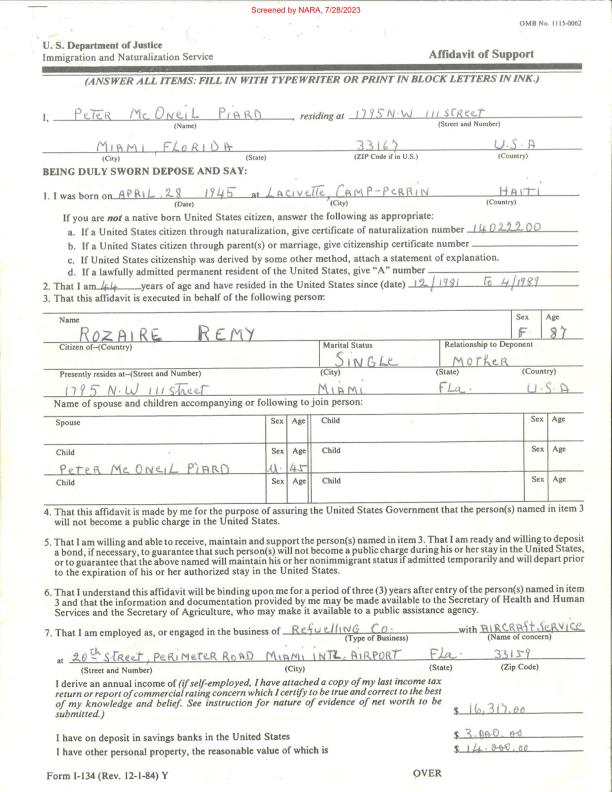 Screened by NARA, 7/28/2023
OMB No. 1115-0062
U. S. Department of Justice
Immigration and Naturalization Service
Affidavit of Support
(ANSWER ALL ITEMS: FILL IN WITH TYPEWRITER OR PRINT IN BLOCK LETTERS IN INK.)
I, PETER MC ONEIL PIARD, residing at 1795 N.W 111 STREET
(Name) (Street and Number)
MIAMI, FLORIDA 33167 U.S.A
(City) (State) (ZIP Code if in U.S.) (Country)
BEING DULY SWORN DEPOSE AND SAY:
1. I was born on APRIL, 28 1945 at LACIVETTE, CAMP-PERRIN HAITI
(Date) (City) (Country)
If you are not a native born United States citizen, answer the following as appropriate:
a. If a United States citizen through naturalization, give certificate of naturalization number 14022200
b. If a United States citizen through parent(s) or marriage, give citizenship certificate number
c. If United States citizenship was derived by some other method, attach a statement of explanation.
d. If a lawfully admitted permanent resident of the United States, give "A" number
2. That I am 44 years of age and have resided in the United States since (date) 12/1981 to 4/1989
3. That this affidavit is executed in behalf of the following person:
Name Sex Age
ROZAIRE REMY F 87
Citizen of--(Country) Marital Status Relationship to Deponent
SINGLE MOTHER
Presently resides at--(Street and Number) (City) (State) (Country)
1795 N.W 111 Street MIAMI FLa. U.S.A
Name of spouse and children accompanying or following to join person:
Spouse Sex Age Child Sex Age
Child Sex Age Child Sex Age
PETER MC ONEIL PIARD M. 45
Child Sex Age Child Sex Age
4. That this affidavit is made by me for the purpose of assuring the United States Government that the person(s) named in item 3
will not become a public charge in the United States.
5. That I am willing and able to receive, maintain and support the person(s) named in item 3. That I am ready and willing to deposit
a bond, if necessary, to guarantee that such person(s) will not become a public charge during his or her stay in the United States,
or to guarantee that the above named will maintain his or her nonimmigrant status if admitted temporarily and will depart
prior to the expiration of his or her authorized stay in the United States.
6. That I understand this affidavit will be binding upon me for a period of three (3) years after entry of the person(s) named in item
3 and that the information and documentation provided by me may be made available to the Secretary of Health and Human
Services and the Secretary of Agriculture, who may make it available to a public assistance agency.
7. That I am employed as, or engaged in the business of REFUELLING CO. with AIRCRAFT SERVICE
(Type of Business) (Name of concern)
at 20th STREET, PERIMETER ROAD MIAMI INTL. AIRPORT FLa. 33159
(Street and Number) (City) (State) (Zip Code)
I derive an annual income of (if self-employed, I have attached a copy of my last income tax
return or report of commercial rating concern which I certify to be true and correct to the best
of my knowledge and belief. See instruction for nature of evidence of net worth to be
submitted.) $ 16,317.00
I have on deposit in savings banks in the United States $ 3.000.00
I have other personal property, the reasonable value of which is $ 14.000.00
Form I-134 (Rev. 12-1-84) Y OVER